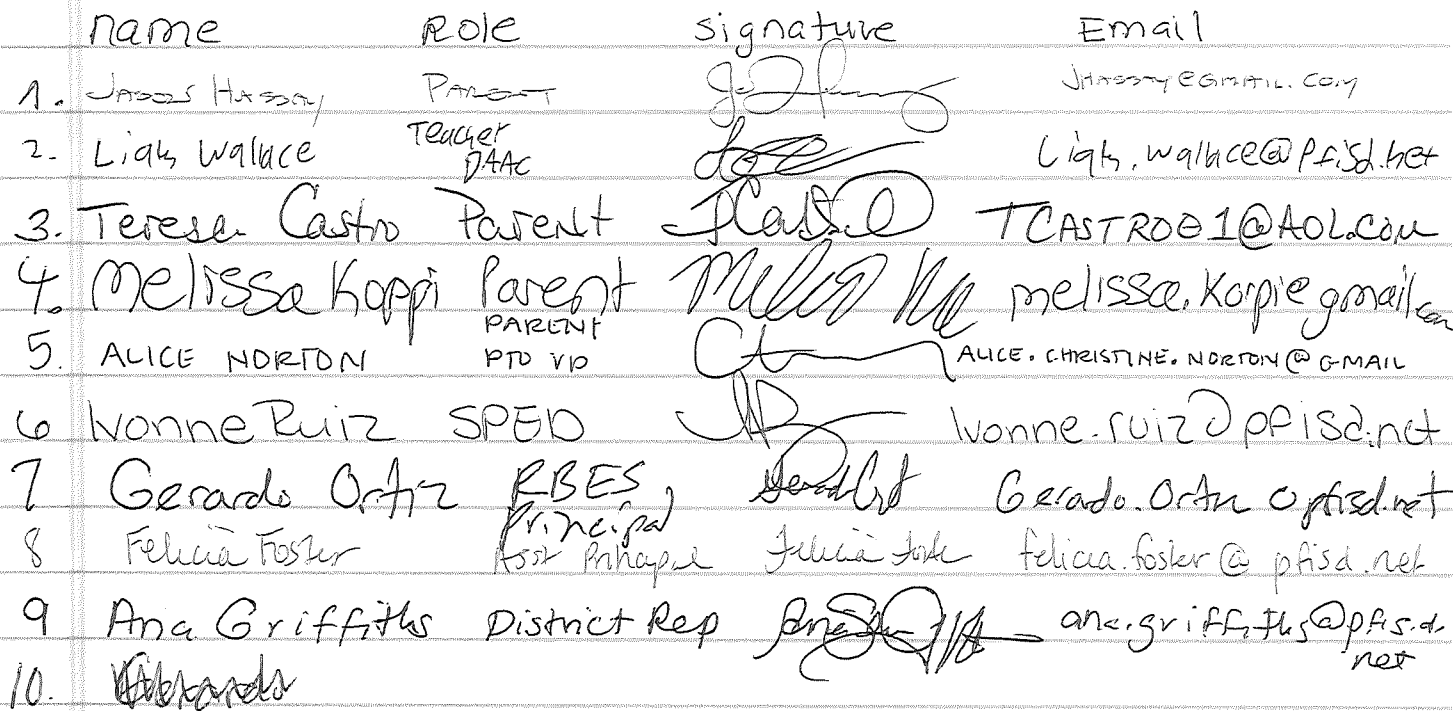 name Role signature Email
1. Hassay Parent jhassay@gmail.com
2. Liah Wallace Teacher DAAC Liah.wallace@pfisd.net
3. Teresa Castro Parent TCastro TCASTRO01@AOL.COM
4. Melissa Koppi Parent melissa.koppi@gmail.com
5. ALICE NORTON PARENT PTO VP ALICE.CHRISTINE.NORTON@GMAIL
6 Ivonne Ruiz SPED Ivonne.ruiz@pfisd.net
7 Gerardo Ortiz RBES Principal Gerardo.Ortiz@pfisd.net
8 Felicia Foster Asst Principal Felicia Foster felicia.foster@pfisd.net
9 Ana Griffiths District Rep ana.griffiths@pfisd.net
10.